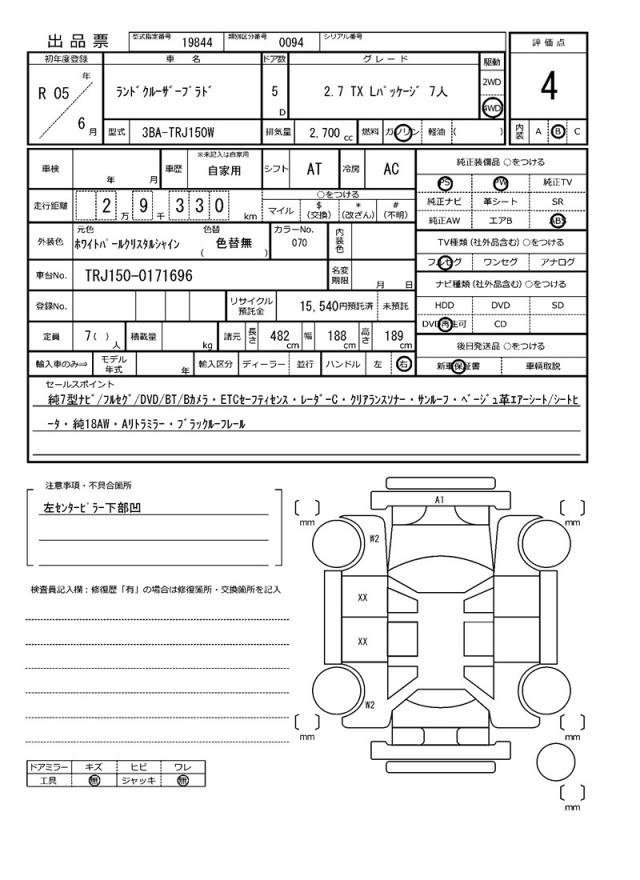 出品票 型式指定番号 19844 類別区分番号 0094 シリアル番号
評価点
4
初年度登録 車名 ドア数 グレード 駆動
R 05 年 6 月
ﾗﾝﾄﾞｸﾙｰｻﾞｰﾌﾟﾗﾄﾞ 5 D 2.7 TX Lﾊﾟｯｹｰｼﾞ 7人
2WD
4WD
型式 3BA-TRJ150W 排気量 2,700 cc 燃料 ガソリン 軽油 ( )
内装 A B C
車検 年 月 車歴 ※未記入は自家用 自家用 シフト AT 冷房 AC
走行距離 2 万 9 千 330 km
○をつける
マイル $(交換) *(改ざん) #(不明)
外装色 元色 ﾎﾜｲﾄﾊﾟｰﾙｸﾘｽﾀﾙｼｬｲﾝ 色替 ( 色替無 ) カラーNo. 070 内装色
車台No. TRJ150-0171696 名変期限 月 日
登録No. リサイクル預託金 15,540円預託済 未預託
定員 7( ) 人 積載量 kg 諸元 長さ 482 cm 幅 188 cm 高さ 189 cm
輸入車のみ⇒ モデル年式 年 輸入区分 ディーラー 並行 ハンドル 左 右
純正装備品 ○をつける
PS PW 純正TV
純正ナビ 革シート SR
純正AW エアB ABS
TV種類 (社外品含む) ○をつける
フルセグ ワンセグ アナログ
ナビ種類 (社外品含む) ○をつける
HDD DVD SD
DVD再生可 CD
後日発送品 ○をつける
新車保証書 車輌取説
セールスポイント
純7型ﾅﾋﾞ/ﾌﾙｾｸﾞ/DVD/BT/Bｶﾒﾗ・ETCｾｰﾌﾃｨｾﾝｽ・ﾚｰﾀﾞｰC・ｸﾘｱﾗﾝｽｿﾅｰ・ｻﾝﾙｰﾌ・ﾍﾞｰｼﾞｭ革ｴｱｰｼｰﾄ/ｼｰﾄﾋ
ｰﾀ・純18AW・Aﾘﾄﾗﾐﾗｰ・ﾌﾞﾗｯｸﾙｰﾌﾚｰﾙ
注意事項・不具合箇所
左ｾﾝﾀｰﾋﾟﾗｰ下部凹
検査員記入欄：修復歴「有」の場合は修復箇所・交換箇所を記入
ドアミラー キズ ヒビ ワレ
工具 無 ジャッキ 無
A1
[ ] mm
[ ] mm
W2
XX
XX
W2
[ ] mm
[ ] mm
[ ] mm